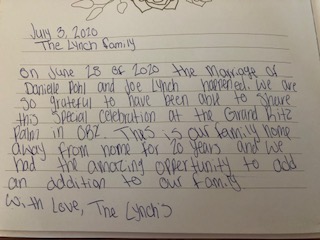 July 3, 2020
The Lynch family
On June 28 of 2020 the marriage of
Danielle Pohl and Joe Lynch happened. We are
so grateful to have been able to share
this special celebration at the Grand Ritz
Palm in OBZ. This is our family home
away from home for 20 years and we
had the amazing opportunity to add
an addition to our family.
With Love, The Lynch's